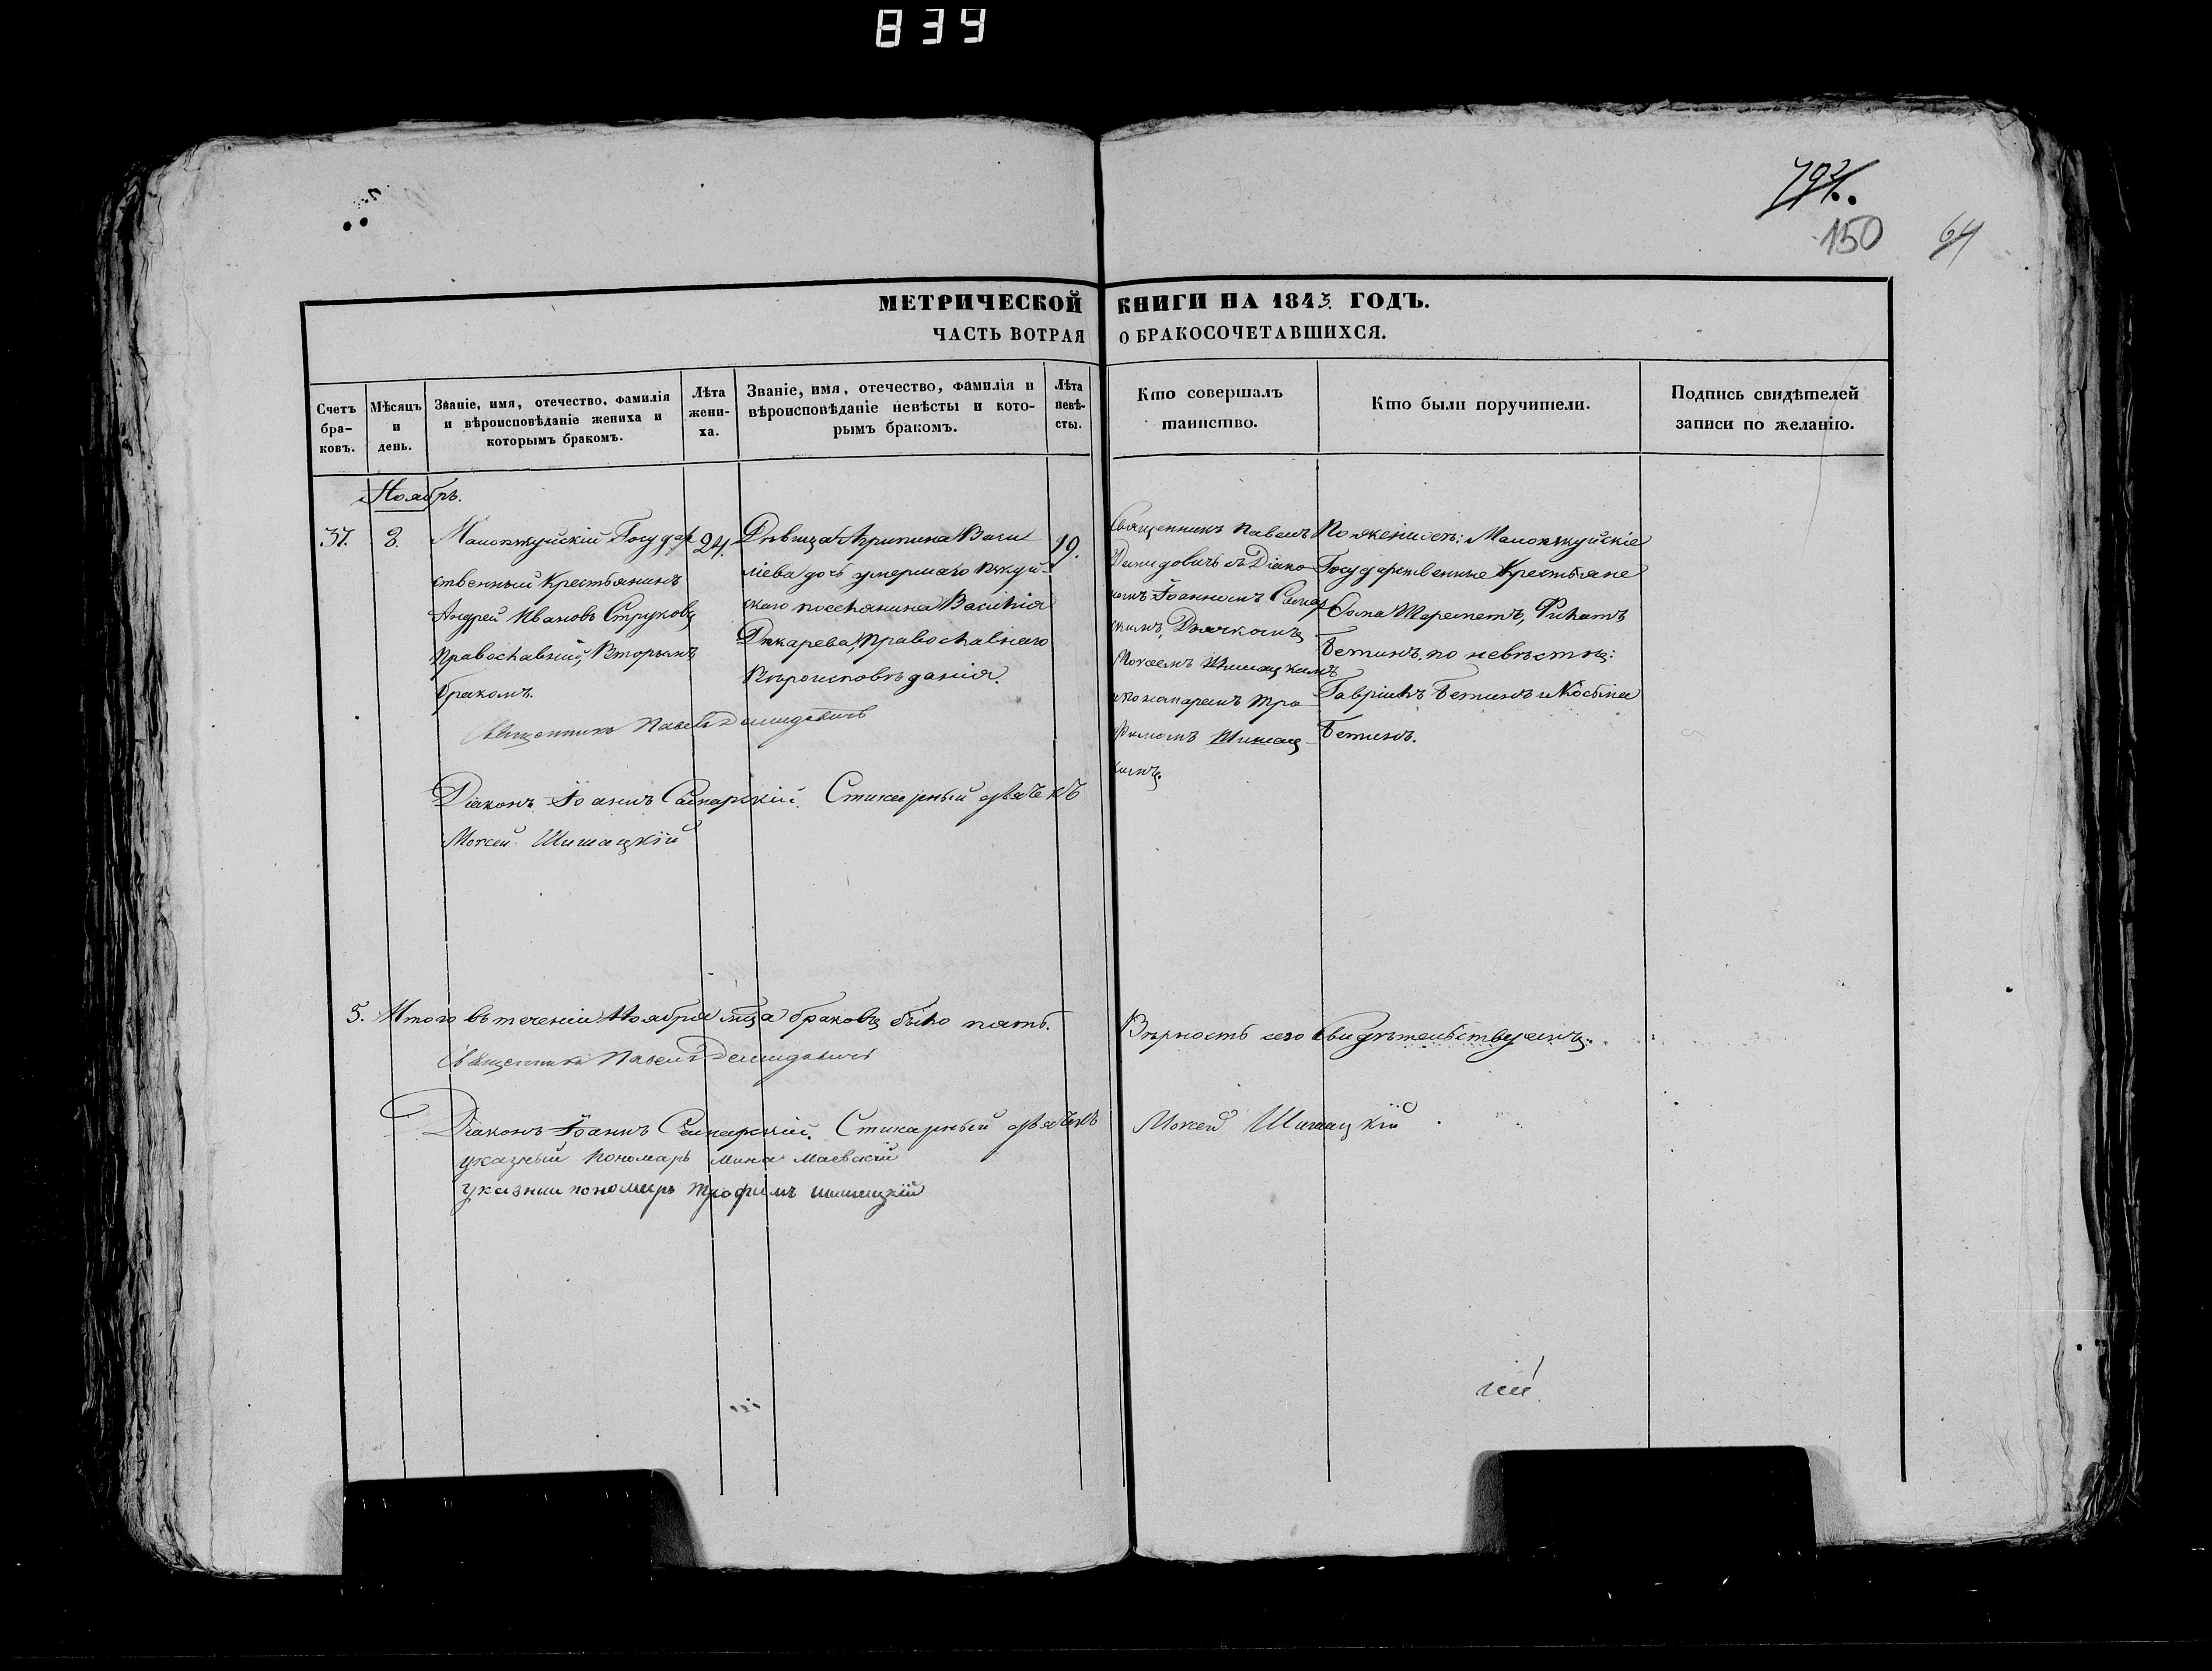 834
792.
150
64
МЕТРИЧЕСКОЙ КНИГИ НА 1843. ГОДЪ.
ЧАСТЬ ВОТРАЯ О БРАКОСОЧЕТАВШИХСЯ.
Счетъ бра-ковъ.
Мѣсяцъ и день.
Званіе, имя, отечество, фамилія и вѣроисповѣданіе жениха и которымъ бракомъ.
Лѣта жени-ха.
Званіе, имя, отечество, фамилія и вѣроисповѣданіе невѣсты и кото-рымъ бракомъ.
Лѣта невѣ-сты.
Кто совершалъ таинство.
Кто были поручители.
Подпись свидѣтелей записи по желанію.
Ноябрь.
37.
8.
Государ
ственный Крестьянинъ
Андрей Ивановъ Струковъ
Православный, Вторымъ
бракомъ.
24.
Дѣвица Акрипина Васи
лiева дочь умершаго
поселянина Василія
Дикарева, Православнаго
Вѣроисповѣданія.
19.
Священникъ Павелъ
Демидовичъ съ Діако
номъ Іоанномъ
Дьячкомъ
Моисеемъ Шишацкимъ
и пономаремъ Тро
фимомъ Шишац
кимъ.
По женихѣ:
Государственные Крестьяне
Фома Шереметъ, Филатъ
Бетинъ. по невѣстѣ:
Гавріилъ Бетинъ и Косьма
Бетинъ.
Священникъ Павелъ Демидовичъ
Діаконъ Іоаннъ Стихарный дьячекъ
Моисей Шишацкій
5. Итого въ теченіи Ноября мца браковъ было пять.
Священникъ Павелъ Демидовичъ
Вѣрность сего свидѣтельствуемъ.
Діаконъ Іоаннъ Стихарный дьячекъ Моисей Шишацкій
указный пономарь Мина Маевскій
указный пономарь Трофимъ Шишацкій